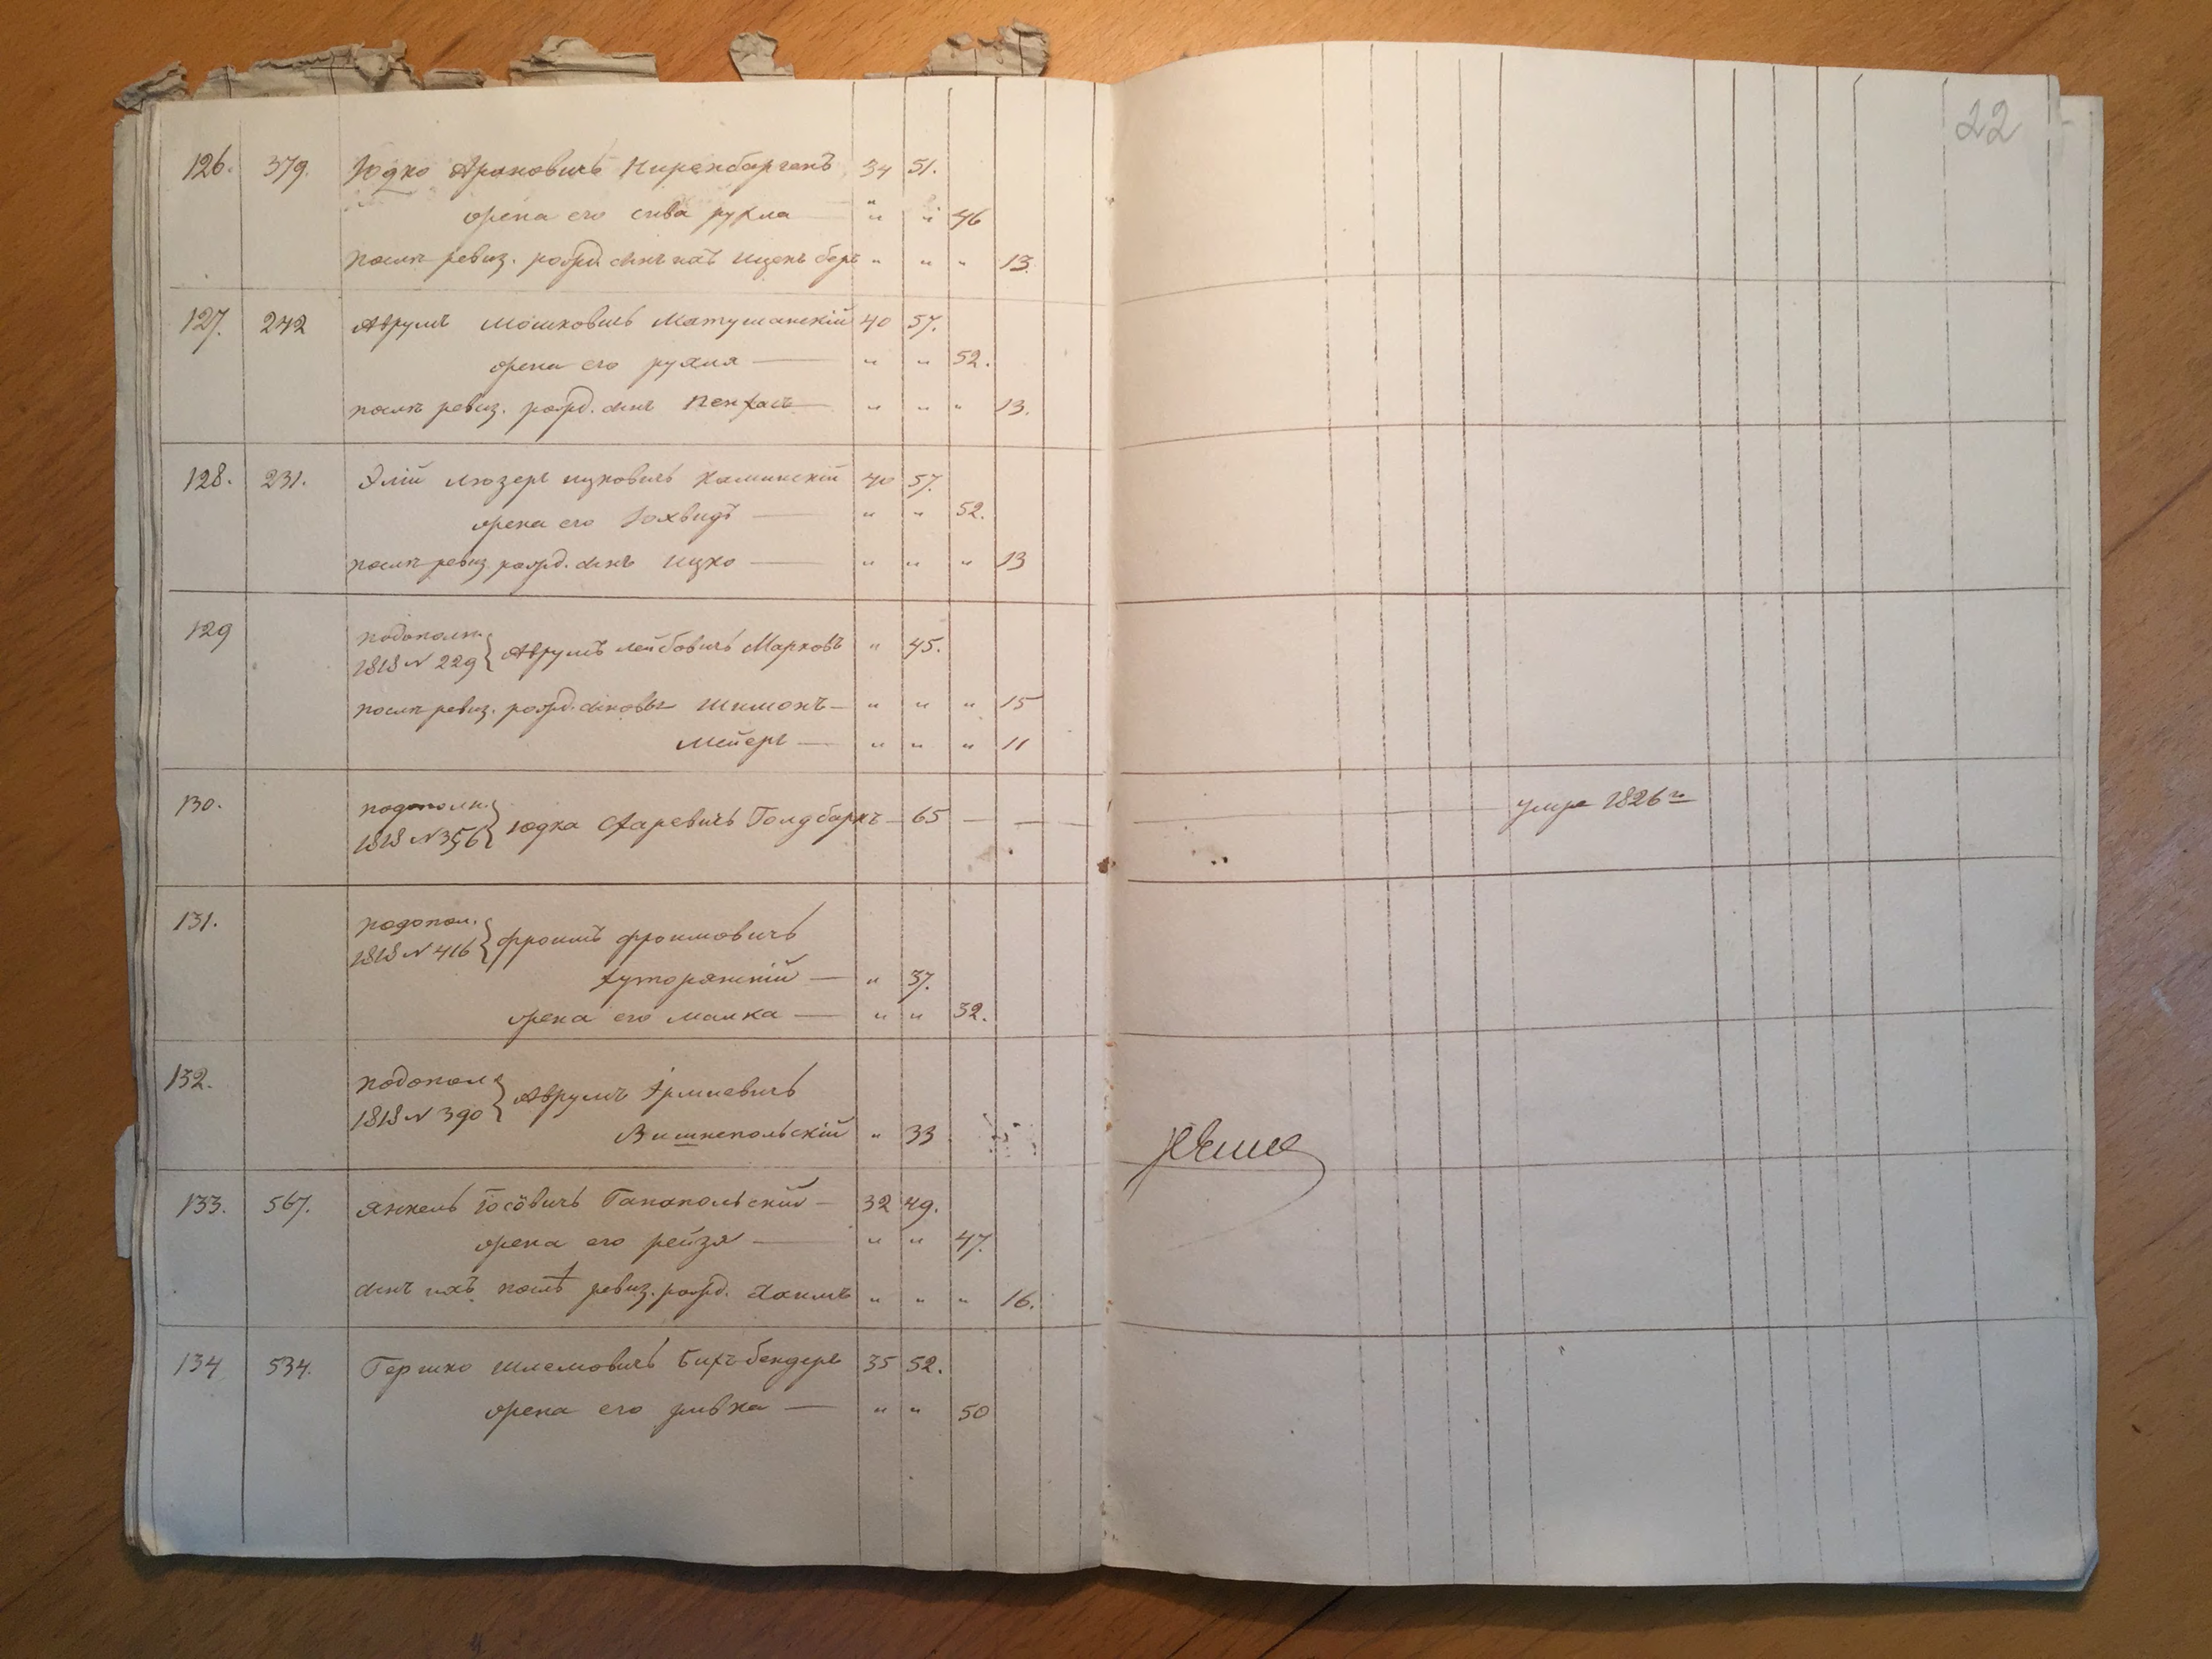 22
126. 379. Юдко Ароновичъ Киренбаргенъ 34 51.
жена его сива рухла — " " 46
послѣ ревиз. рожд. сынъ ихъ иценъ беръ " " " 13.
127. 242 Аврумъ Мошковичъ Матушанскій 40 57.
жена его рухля — " " 52.
послѣ ревиз. рожд. сынъ Пенхасъ " " " 13.
128. 231. Элій Люзеръ ицковичъ Каминскій 40 57.
жена его Іохвидъ — " " 52.
послѣ ревиз. рожд. сынъ ицко — " " " 13
129 подополн.
1818 N 229 } Аврумъ лейбовичъ Марковъ " 45.
послѣ ревиз. рожд. сыновья Шимонъ — " " " 15
Мейеръ — " " " 11
130. подополн.
1818 N 356 } юдка Старевичъ Голдбаркъ — 65 — — умре 1826 го
131. подопол.
1818 N 416 } фроимъ фроимовичъ
хуторянскій — " 37.
жена его малка — " " 32.
132. подопол
1818 N 390 } Аврумъ Срмиевичъ
Вишнепольскій " 33
133. 567. Янкель Іосёвичъ Ганапольскій — 32 49.
жена его рейзя — " " 47.
сынъ ихъ послѣ ревиз. рожд. Хаимъ " " " 16.
134 534. Гершко шлемовичъ Бихъбендеръ 35 52.
жена его ривка — " " 50